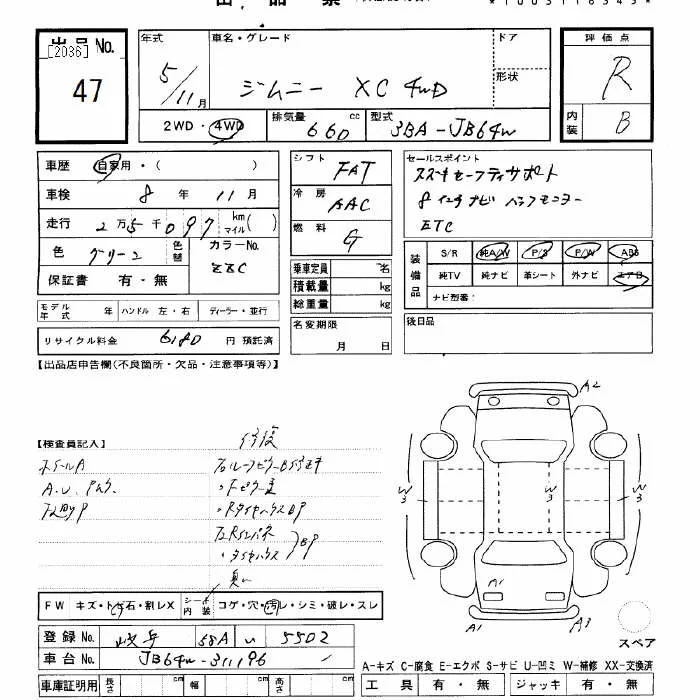 出品票
*1003116343*
出品 No.
[2036]
47
年式
5/11月
車名・グレード
ジムニー XC 4WD
ドア
形状
2WD・4WD
排気量 660 cc
型式 3BA-JB64W
評価点
R
内装
B
車歴 自家用・( )
車検 8年 11月
走行 2万5千097 km マイル( )
色 グリーン
色替
カラーNo. ZZC
保証書 有・無
モデル年式 年 ハンドル 左・右 ディーラー・並行
リサイクル料金 6180 円 預託済
シフト FAT
冷房 AAC
燃料 G
乗車定員 名
積載量 kg
総重量 kg
名変期限
月 日
セールスポイント
スズキセーフティサポート
8インチナビ バックモニター
ETC
装備品
S/R 純A/W P/S P/W ABS
純TV 純ナビ 革シート 外ナビ エアB
ナビ型番:
後日品
【出品店申告欄(不良箇所・欠品・注意事項等)】
【検査員記入】
修復
ホイールA
A.U.
・Fピラー
・RタイヤハウスBP
・タイヤハウス
BP
臭い
A2
W3
W3
W3
A1
A1
A3
スペア
FW キズ・トビ石・割レX
シート内装 コゲ・穴・汚レ・シミ・破レ・スレ
登録 No. 岐阜 58A い 5502
車台 No. JB64W-311196
車庫証明用 長さ cm 幅 cm 高さ cm
A-キズ C-腐食 E-エクボ S-サビ U-凹ミ W-補修 XX-交換済
工具 有・無 ジャッキ 有・無